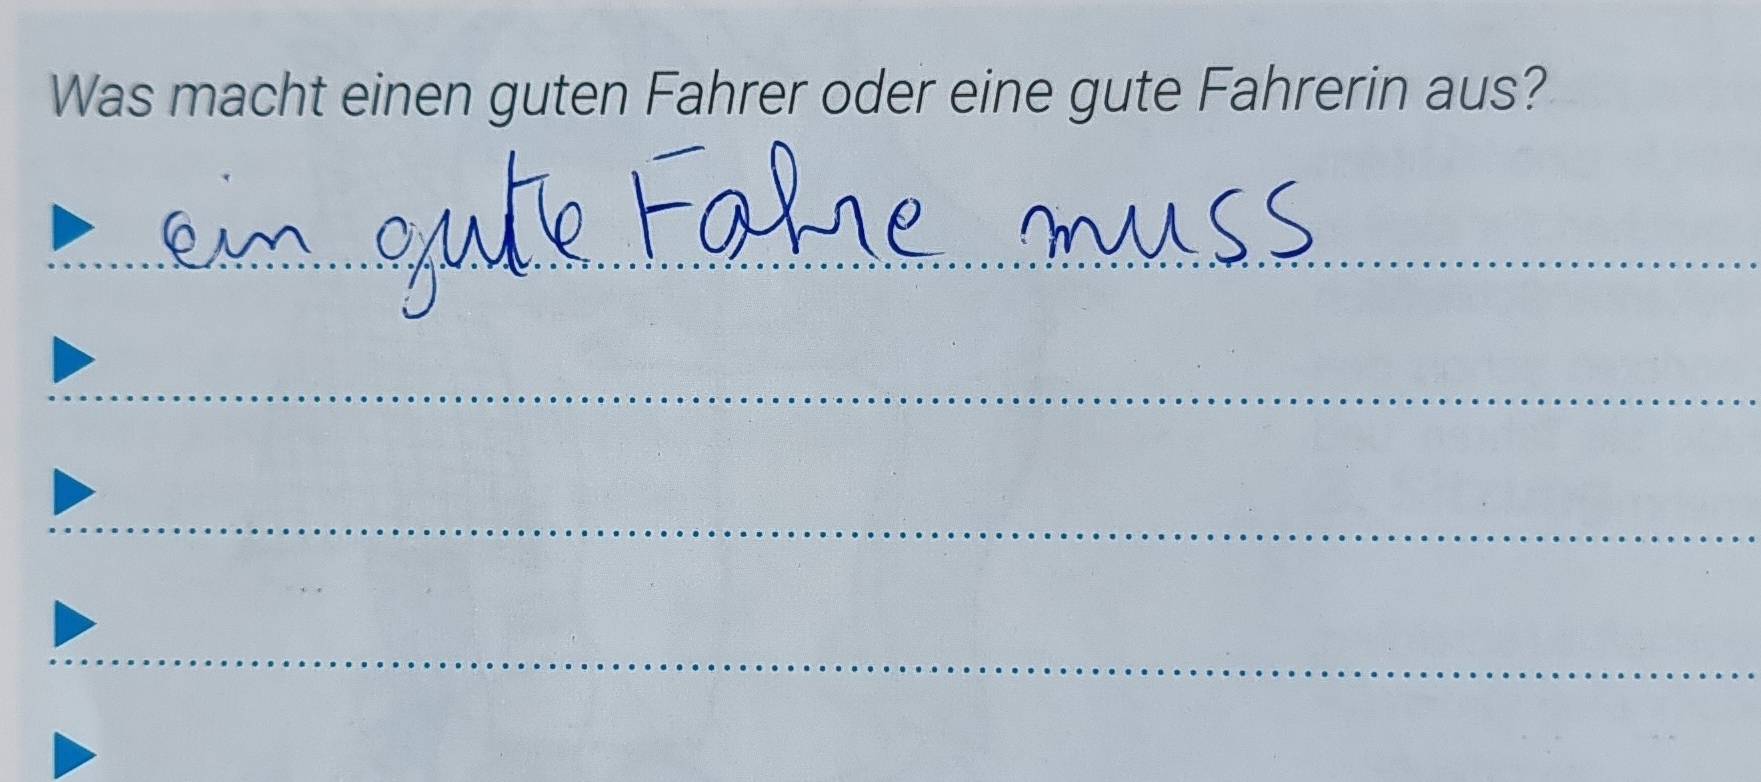 Was macht einen guten Fahrer oder eine gute Fahrerin aus?
ein gute Fahre muss